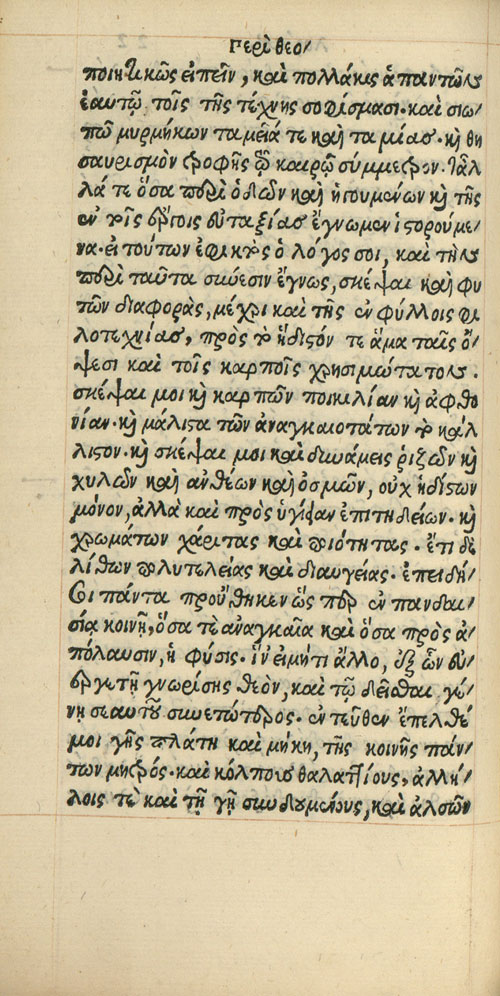 Περὶ θεο/
ποιητικῶς εἰπεῖν, καὶ πολλάκις ἁπαντῶσ
ἑαυτῷ τοῖς τῆς τέχνης σοφίσμασι· καὶ σιω/
πῶ μυρμήκων ταμεῖά τε καὶ ταμίας· κ θη
σαυρισμὸν τροφῆς τῷ καιρῷ σύμμετρον. ἢ ἄλ
λά τε ὅσα περὶ ὁδῶν καὶ ἡγουμένων κ τῆς
ἐν τοῖς ἔργοις εὐταξίας ἔγνωμεν ἱστορούμε/
να· εἰ τούτων ἐφικτὸς ὁ λόγος σοι, καὶ τὴν
περὶ ταῦτα σύνεσιν ἔγνως, σκέψαι καὶ φυ
τῶν διαφορὰς, μέχρι καὶ τῆς ἐν φύλλοις φι
λοτεχνίας, πρὸς τὸ ἥδιστόν τε ἅμα ταῖς ὄ/
ψεσι καὶ τοῖς καρποῖς χρησιμώτατον.
σκέψαι μοι κ καρπῶν ποικιλίαν κ ἀφθο
νίαν· κ μάλιστα τῶν ἀναγκαιοτάτων τὸ κάλ/
λιστον· κ σκέψαι μοι καὶ δυνάμεις ῥιζῶν κ
χυλῶν καὶ ἀνθέων καὶ ὀσμῶν, οὐχ ἡδίστων
μόνον, ἀλλὰ καὶ πρὸς ὑγίειαν ἐπιτηδείων· κ
χρωμάτων χάριτας καὶ ποιότητας· ἔτι δὲ
λίθων πολυτελείας καὶ διαυγείας· ἐπειδή/
σοι πάντα προὔθηκεν ὥσπερ ἐν πανδαι/
σίᾳ κοινῇ, ὅσα τὲ ἀναγκαῖα καὶ ὅσα πρὸς ἀ/
πόλαυσιν, ἡ φύσις· ἵν' εἰ μή τι ἄλλο, ἐξ ὧν εὐ/
εργετῇ γνωρίσῃς θεὸν, καὶ τῷ δεῖσθαι γέ/
νῃ σεαυτοῦ συνετώτερος· ἐντεῦθεν ἔπελθέ
μοι γῆς πλάτη καὶ μήκη, τῆς κοινῆς πάν/
των μητρός· καὶ κόλπους θαλαττίους, ἀλλή/
λοις τὲ καὶ τῇ γῇ συνδουμένους, καὶ ἀλσῶν